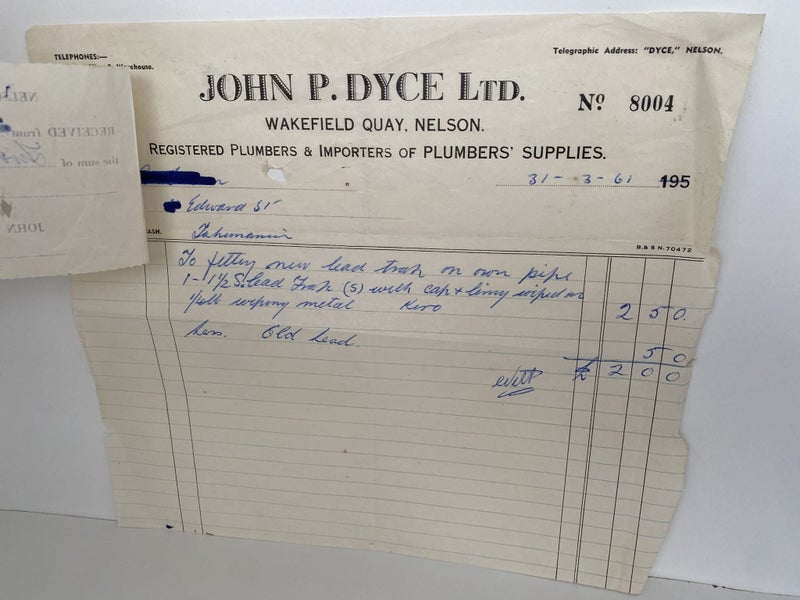 TELEPHONES:—
Warehouse.
Telegraphic Address: "DYCE," NELSON.
JOHN P. DYCE LTD.
Nº 8004
WAKEFIELD QUAY, NELSON.
REGISTERED PLUMBERS & IMPORTERS OF PLUMBERS' SUPPLIES.
31 - 3 - 61 195
Edward St
Tahunanui
CASH.
B.& S N.-70472
To fitting new lead trap on own pipe
1 - 1½ S. lead Trap (S) with cap + lining wiped on
wiping metal Kero 2 5 0.
Less. Old Lead. 5 0
£ 2 0 0
NELS
RECEIVED from
the sum of
JOHN